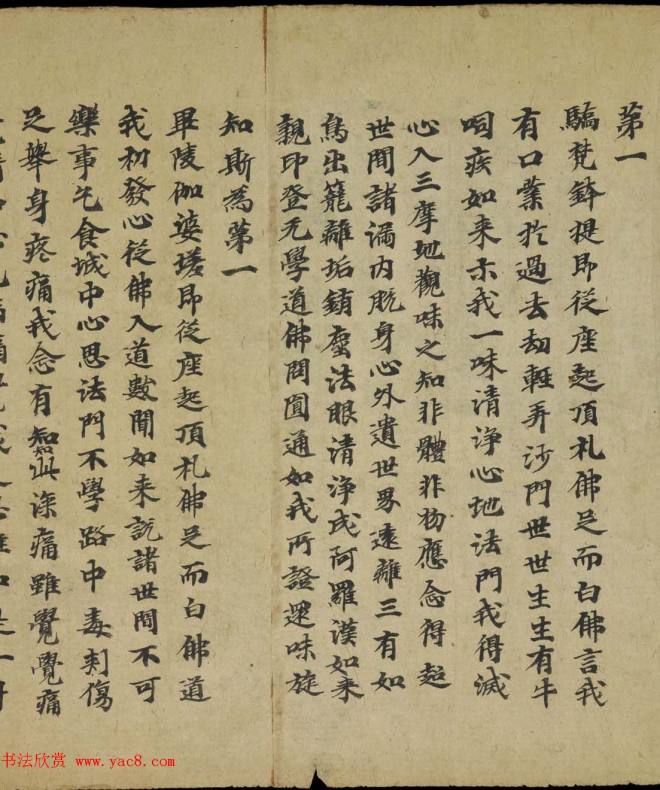 第一
驕梵鉢提即從座起頂礼佛足而白佛言我
有口業於過去劫輕弄沙門世世生生有牛
呞疾如来示我一味清淨心地法門我得滅
心入三摩地觀味之知非體非物應念得超
世間諸漏内脫身心外遺世界遠離三有如
鳥出籠離垢銷塵法眼清淨成阿羅漢如来
親印登无學道佛問圓通如我所證還味旋
知斯為第一
畢陵伽婆瑳即從座起頂礼佛足而白佛道
我初發心從佛入道數聞如来說諸世間不可
樂事乞食城中心思法門不學路中毒刺傷
足舉身疼痛我念有知此深痛雖覺覺痛
书法欣赏 www.yac8.com